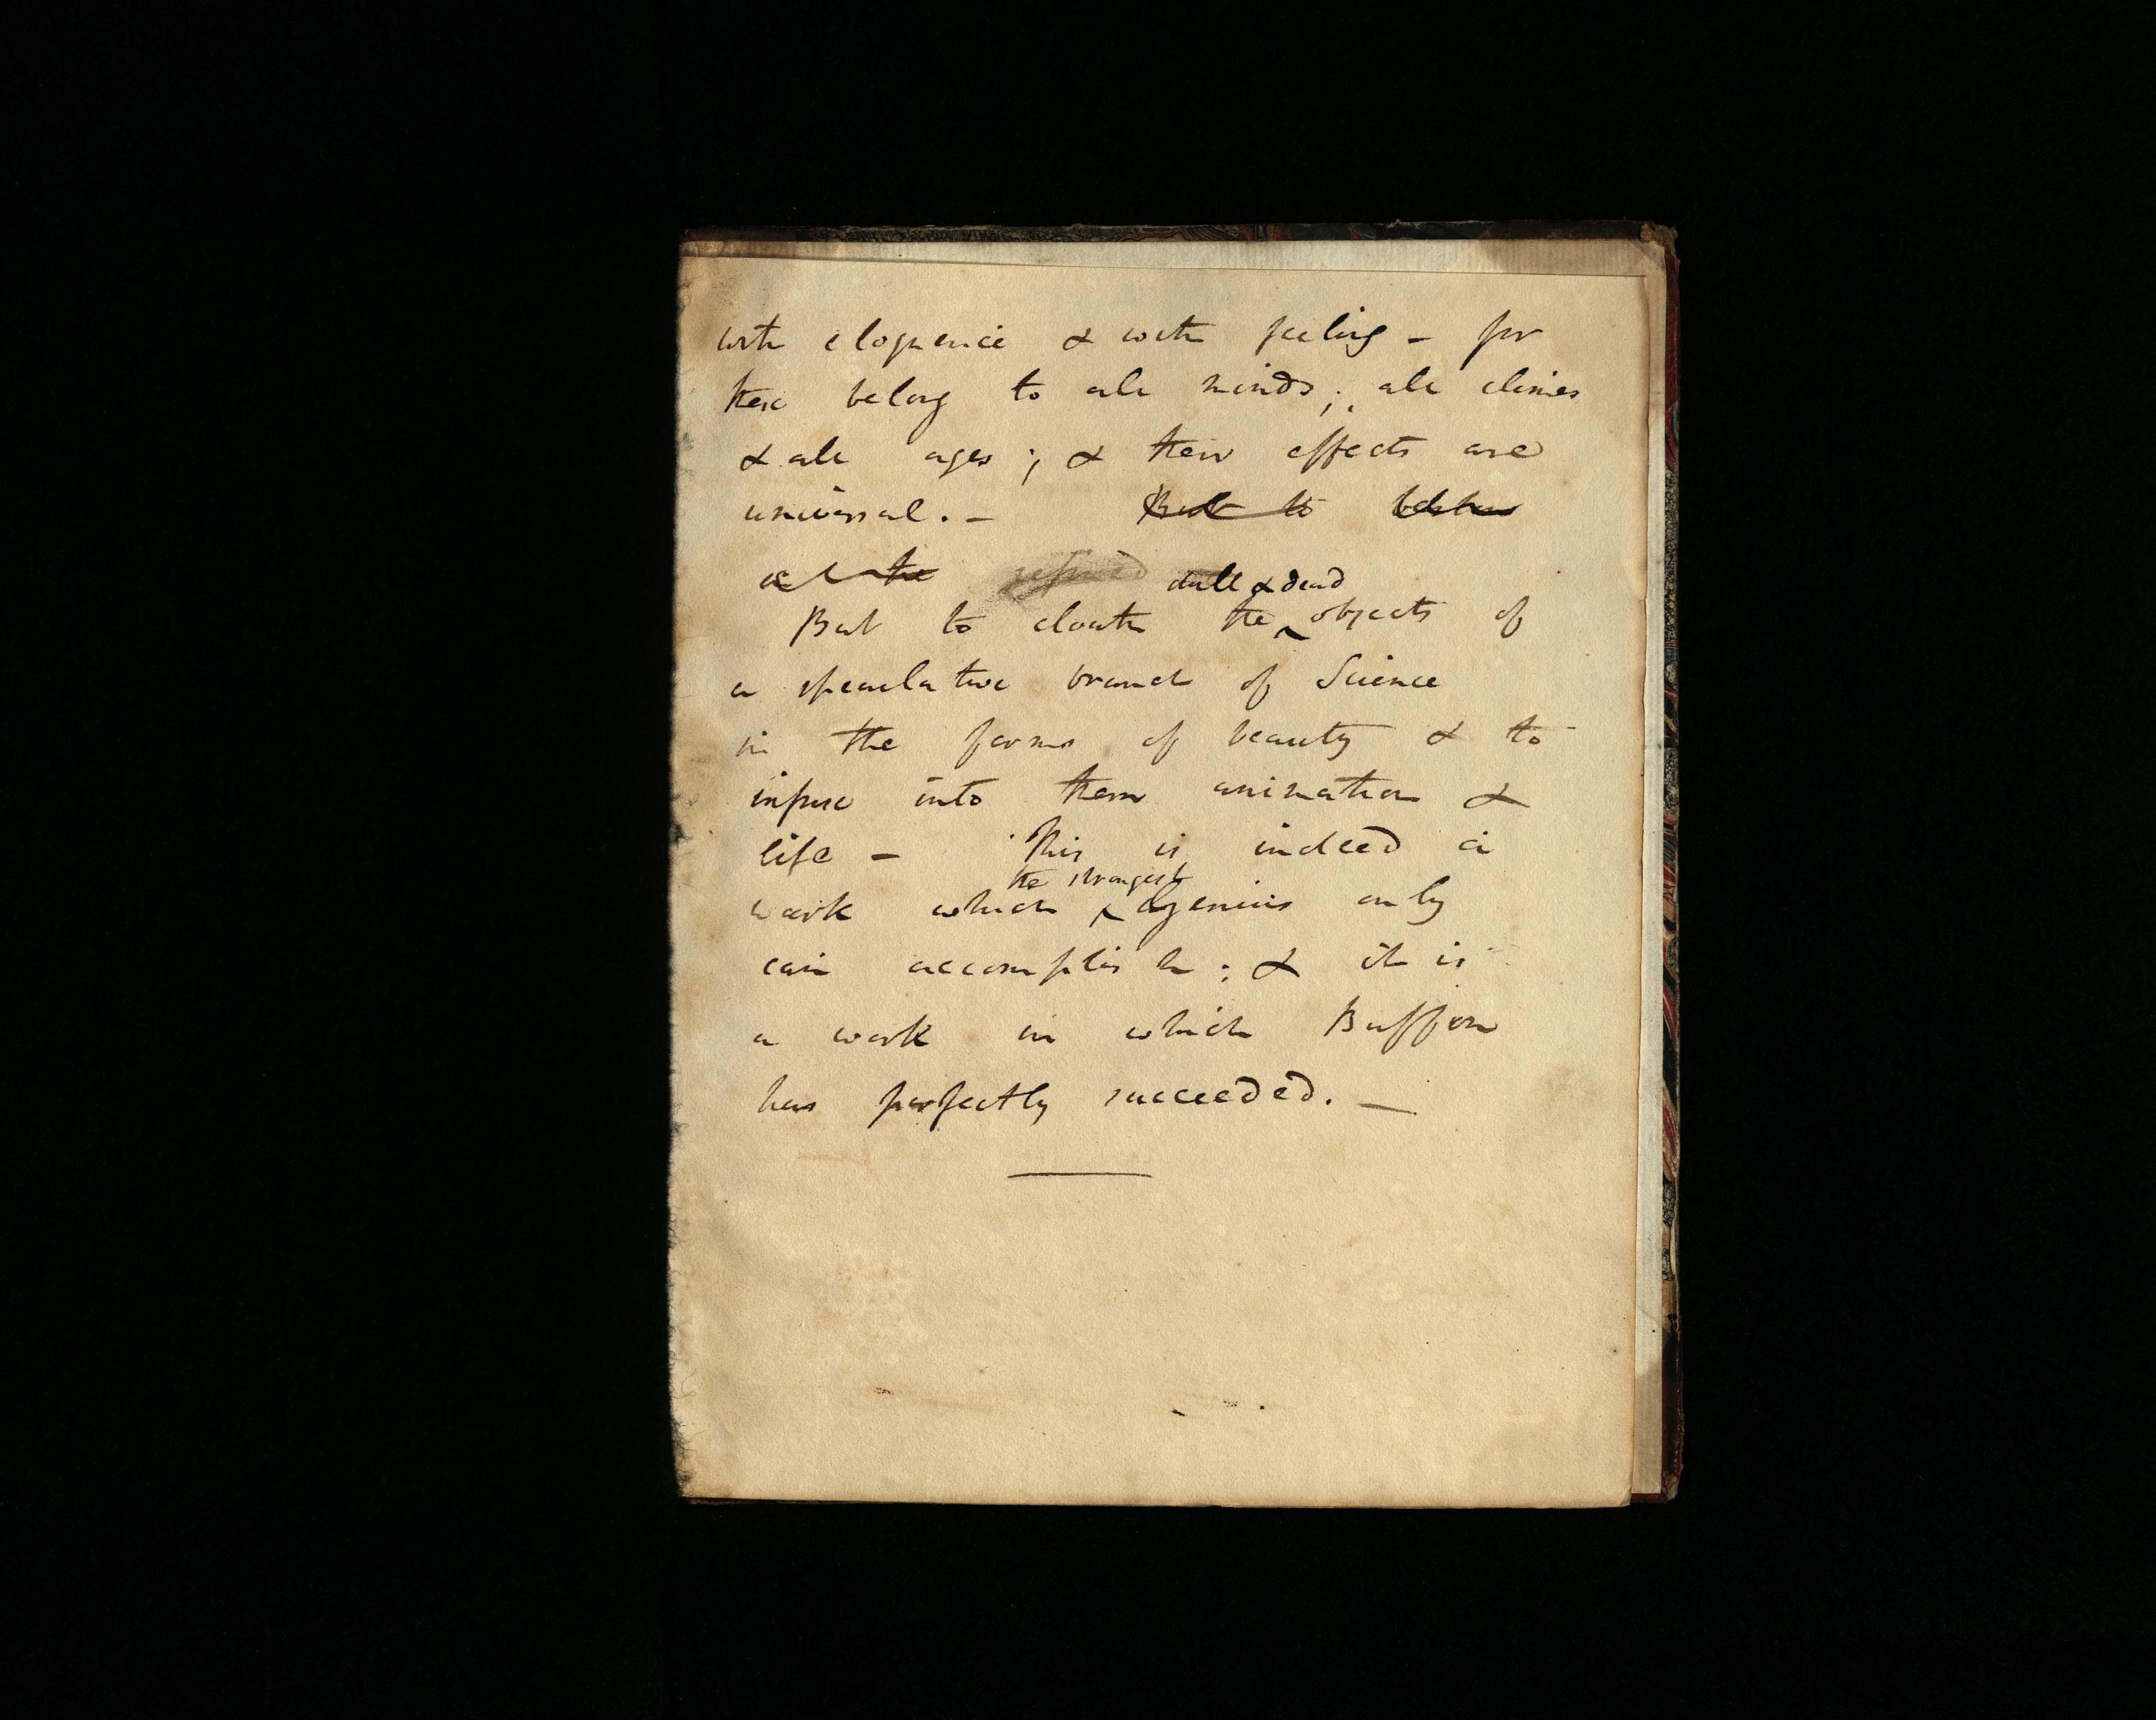 with eloquence & with feeling - for
these belong to all minds; all climes
& all ages; & their effects are
universal. - But to
all the
dull & dead
But to cloath the ‸ objects of
a speculative branch of Science
in the forms of beauty & to
infuse into them animation &
life - This is indeed a
the strongest
work which ‸ genius only
can accomplish; & it is
a work in which Buffon
has perfectly succeeded. -